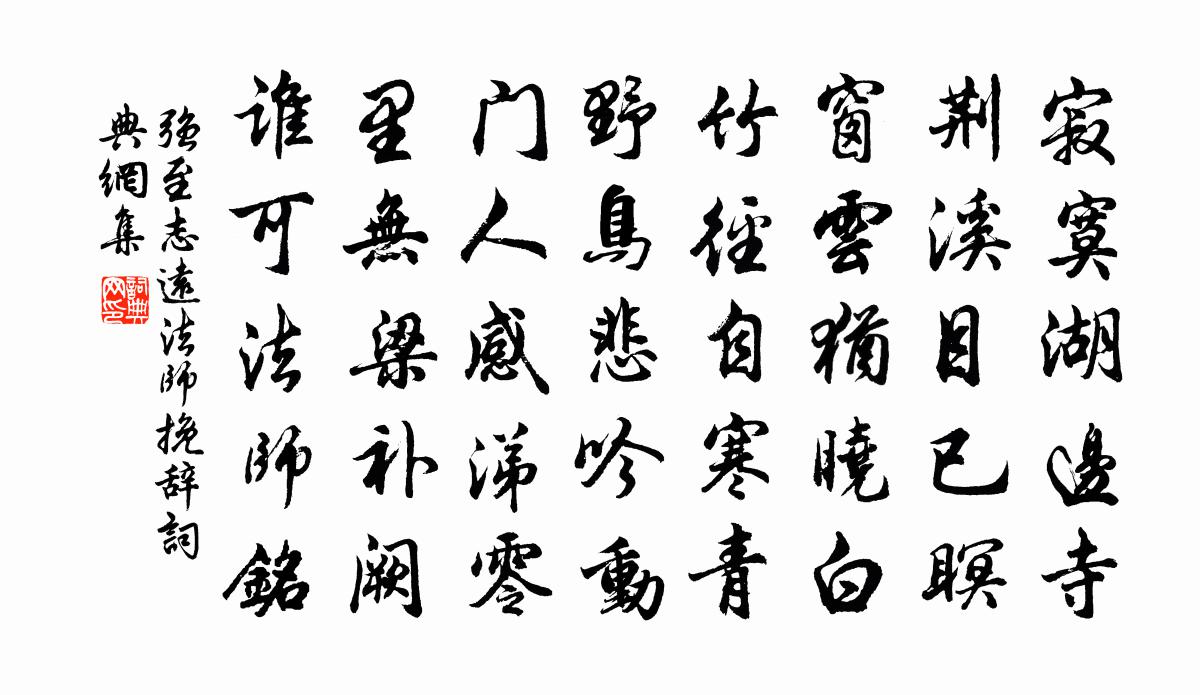 寂寞湖邊寺
荆溪目已瞑
窗雲猶曉白
竹徑自寒青
野鳥悲吟動
门人感涕零
里無梁补阙
誰可法師銘
强至志遠法師挽辞詞
典網集
詞典
网印